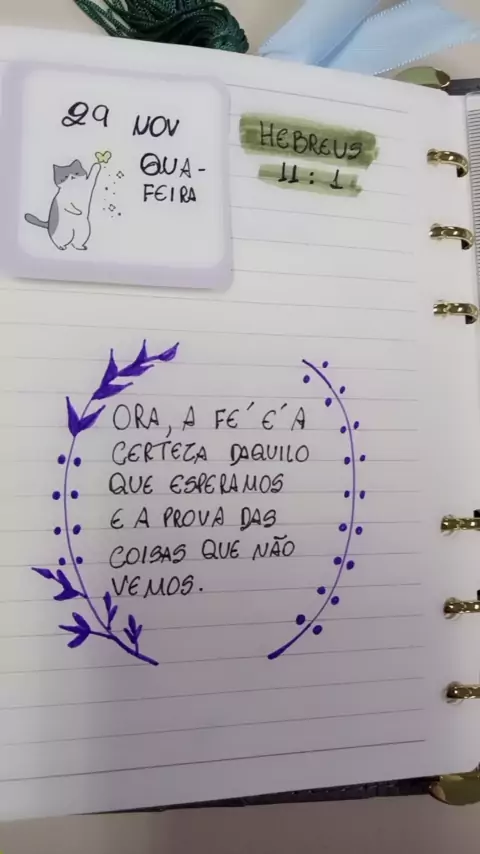 29 NOV
QUA-
FEIRA
HEBREUS
11:1
ORA, A FÉ É A
CERTEZA DAQUILO
QUE ESPERAMOS
E A PROVA DAS
COISAS QUE NÃO
VEMOS.